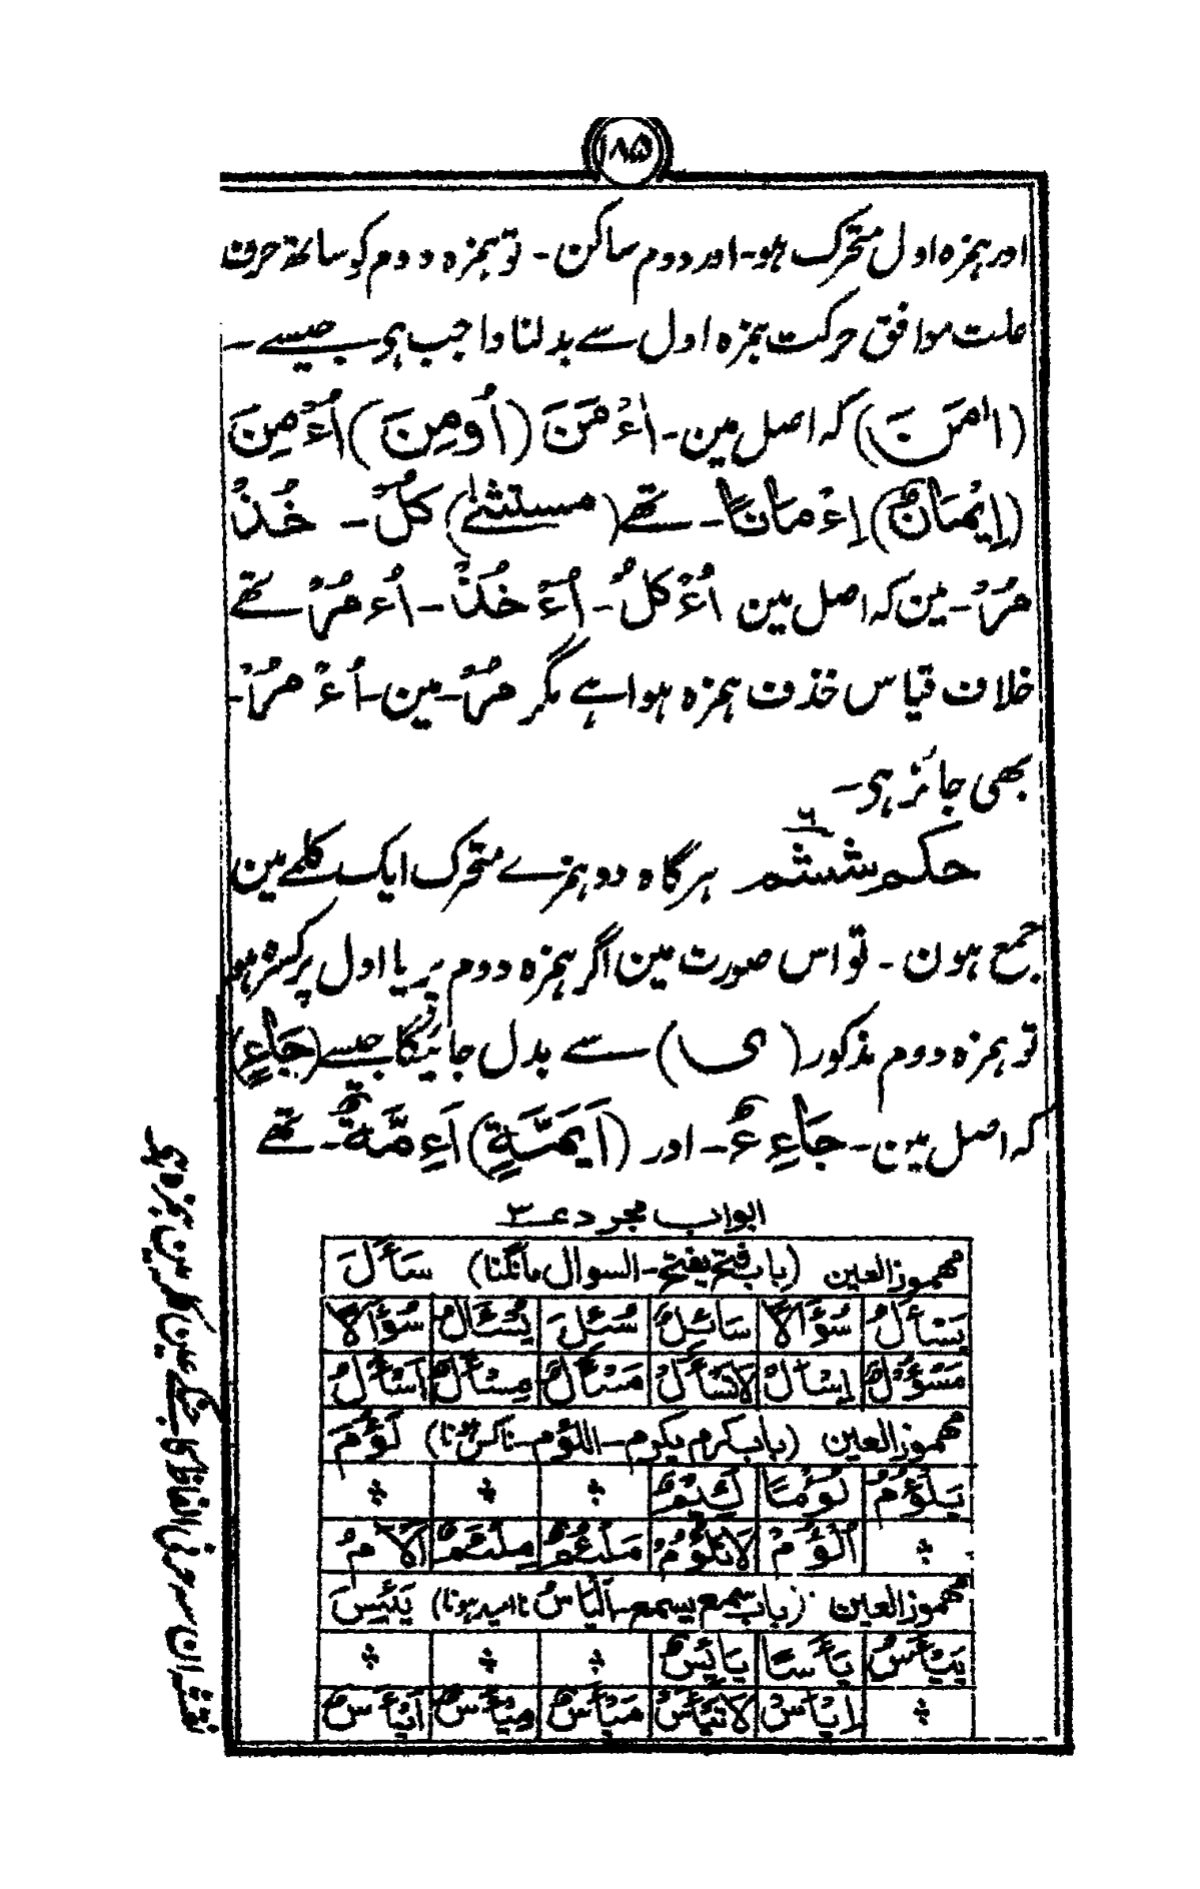 ۱۸۵
اور ہمزہ اول متحرک ہو۔ اور دوم ساکن ۔ تو ہمزہ دوم کو ساتھ حرف
علت موافق حرکت ہمزہ اول سے بدلنا واجب ہی جیسے ۔
(اٰمَنَ) کہ اصل مین ۔ اٰءْمَنَ (اُومِنَ) اُءْمِنَ
(اِیْمَانٌ) اِءْمَانًا۔ تھے (مستثنٰے) کُلْ ۔ خُذْ
مُرْ ۔ مین کہ اصل مین اُءْکُلْ ۔ اُءْخُذْ ۔ اُءْمُرْ تھے
خلاف قیاس خذف ہمزہ ہوا ہے مگر مُرْ ۔ مین ۔ اُءْمُرْ ۔
بھی جائز ہی ۔
۶
حکم ششم ہرگاہ دو ہمزے متحرک ایک کلمے مین
جمع ہون ۔ تو اس صورت مین اگر ہمزہ دوم پر یا اول پر کسرہ ہو
تو ہمزہ دوم مذکور (ی) سے بدل جائیگا جیسے (جَاءٍ)
کہ اصل مین ۔ جَاءِءٌ ۔ اور (اَیِمَّةٍ) اَءِمَّةٌ ۔ تھے
ابواب مجرد عـ۳
مہموز العین (باب فتح یفتح ۔ السوال مانگنا) سَأَلَ
یَسْأَلُ سُؤَالًا سَائِلٌ سُئِلَ یُسْئَالُ سُؤَالًا
مَسْؤُلٌ اِسْأَلْ لَاتَسْأَلْ مَسْأَلٌ مِسْأَلٌ اَسْأَلُ
مہموز العین (باب کرم یکرم ۔ اللؤم ۔ ناکس ہونا) لَؤُمَ
یَلْؤُمُ لُؤْمًا لَئِیْمٌ ÷ ÷ ÷
÷ اُلْؤُمْ لَاتَلْؤُمْ مَلْئَمٌ مِلْئَمٌ اَلْاَمُ
مہموز العین (باب سمع یسمع ۔ الیأس نا امید ہونا) یَئِسَ
یَیْأَسُ یَأْسًا یَائِسٌ ÷ ÷ ÷
÷ اِیْأَسْ لَاتَیْأَسْ مَیْأَسٌ مِیْأَسٌ اَیْأَسُ